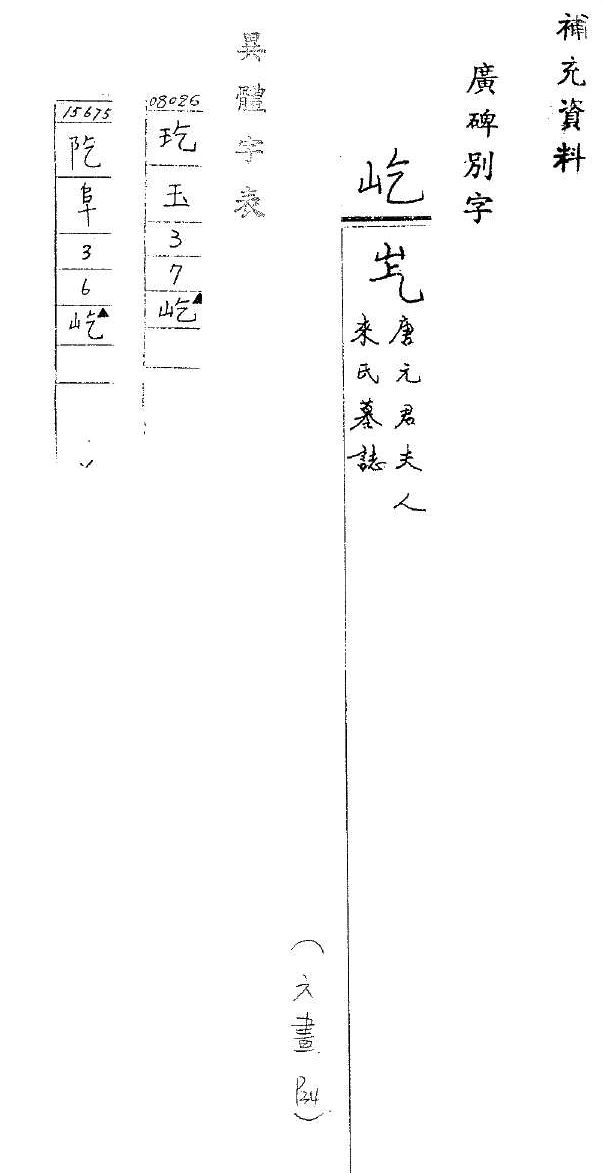 補充資料
廣碑別字
屹
唐元君夫人
來氏墓誌
(六畫 P34)
異體字表
08086
� 3 7 屹▲
15675
阣 阜 3 6 屹▲